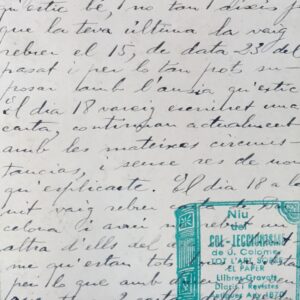 qu'estic be, i no tan aixis
que la teva última la vaig
rebrer el 15, de data 23 del
pasat i per lo tan pots su-
posar amb l'ansia qu'estic
El dia 18 vareig escriuret una
carta, continuan actualment
amb les mateixes circuns-
tancias, i sense res de nou
qu'explicarte. El dia 18 a la
nit vaig rebrer
celona i avui
altra d'ells
me qu'estan tots
per lo que amb
Niu
del
COL·LECCIONISME
de J. Colomer
TOT L'ART SOBRE
EL PAPER
Llibres-Gravats
Diaris i Revistes